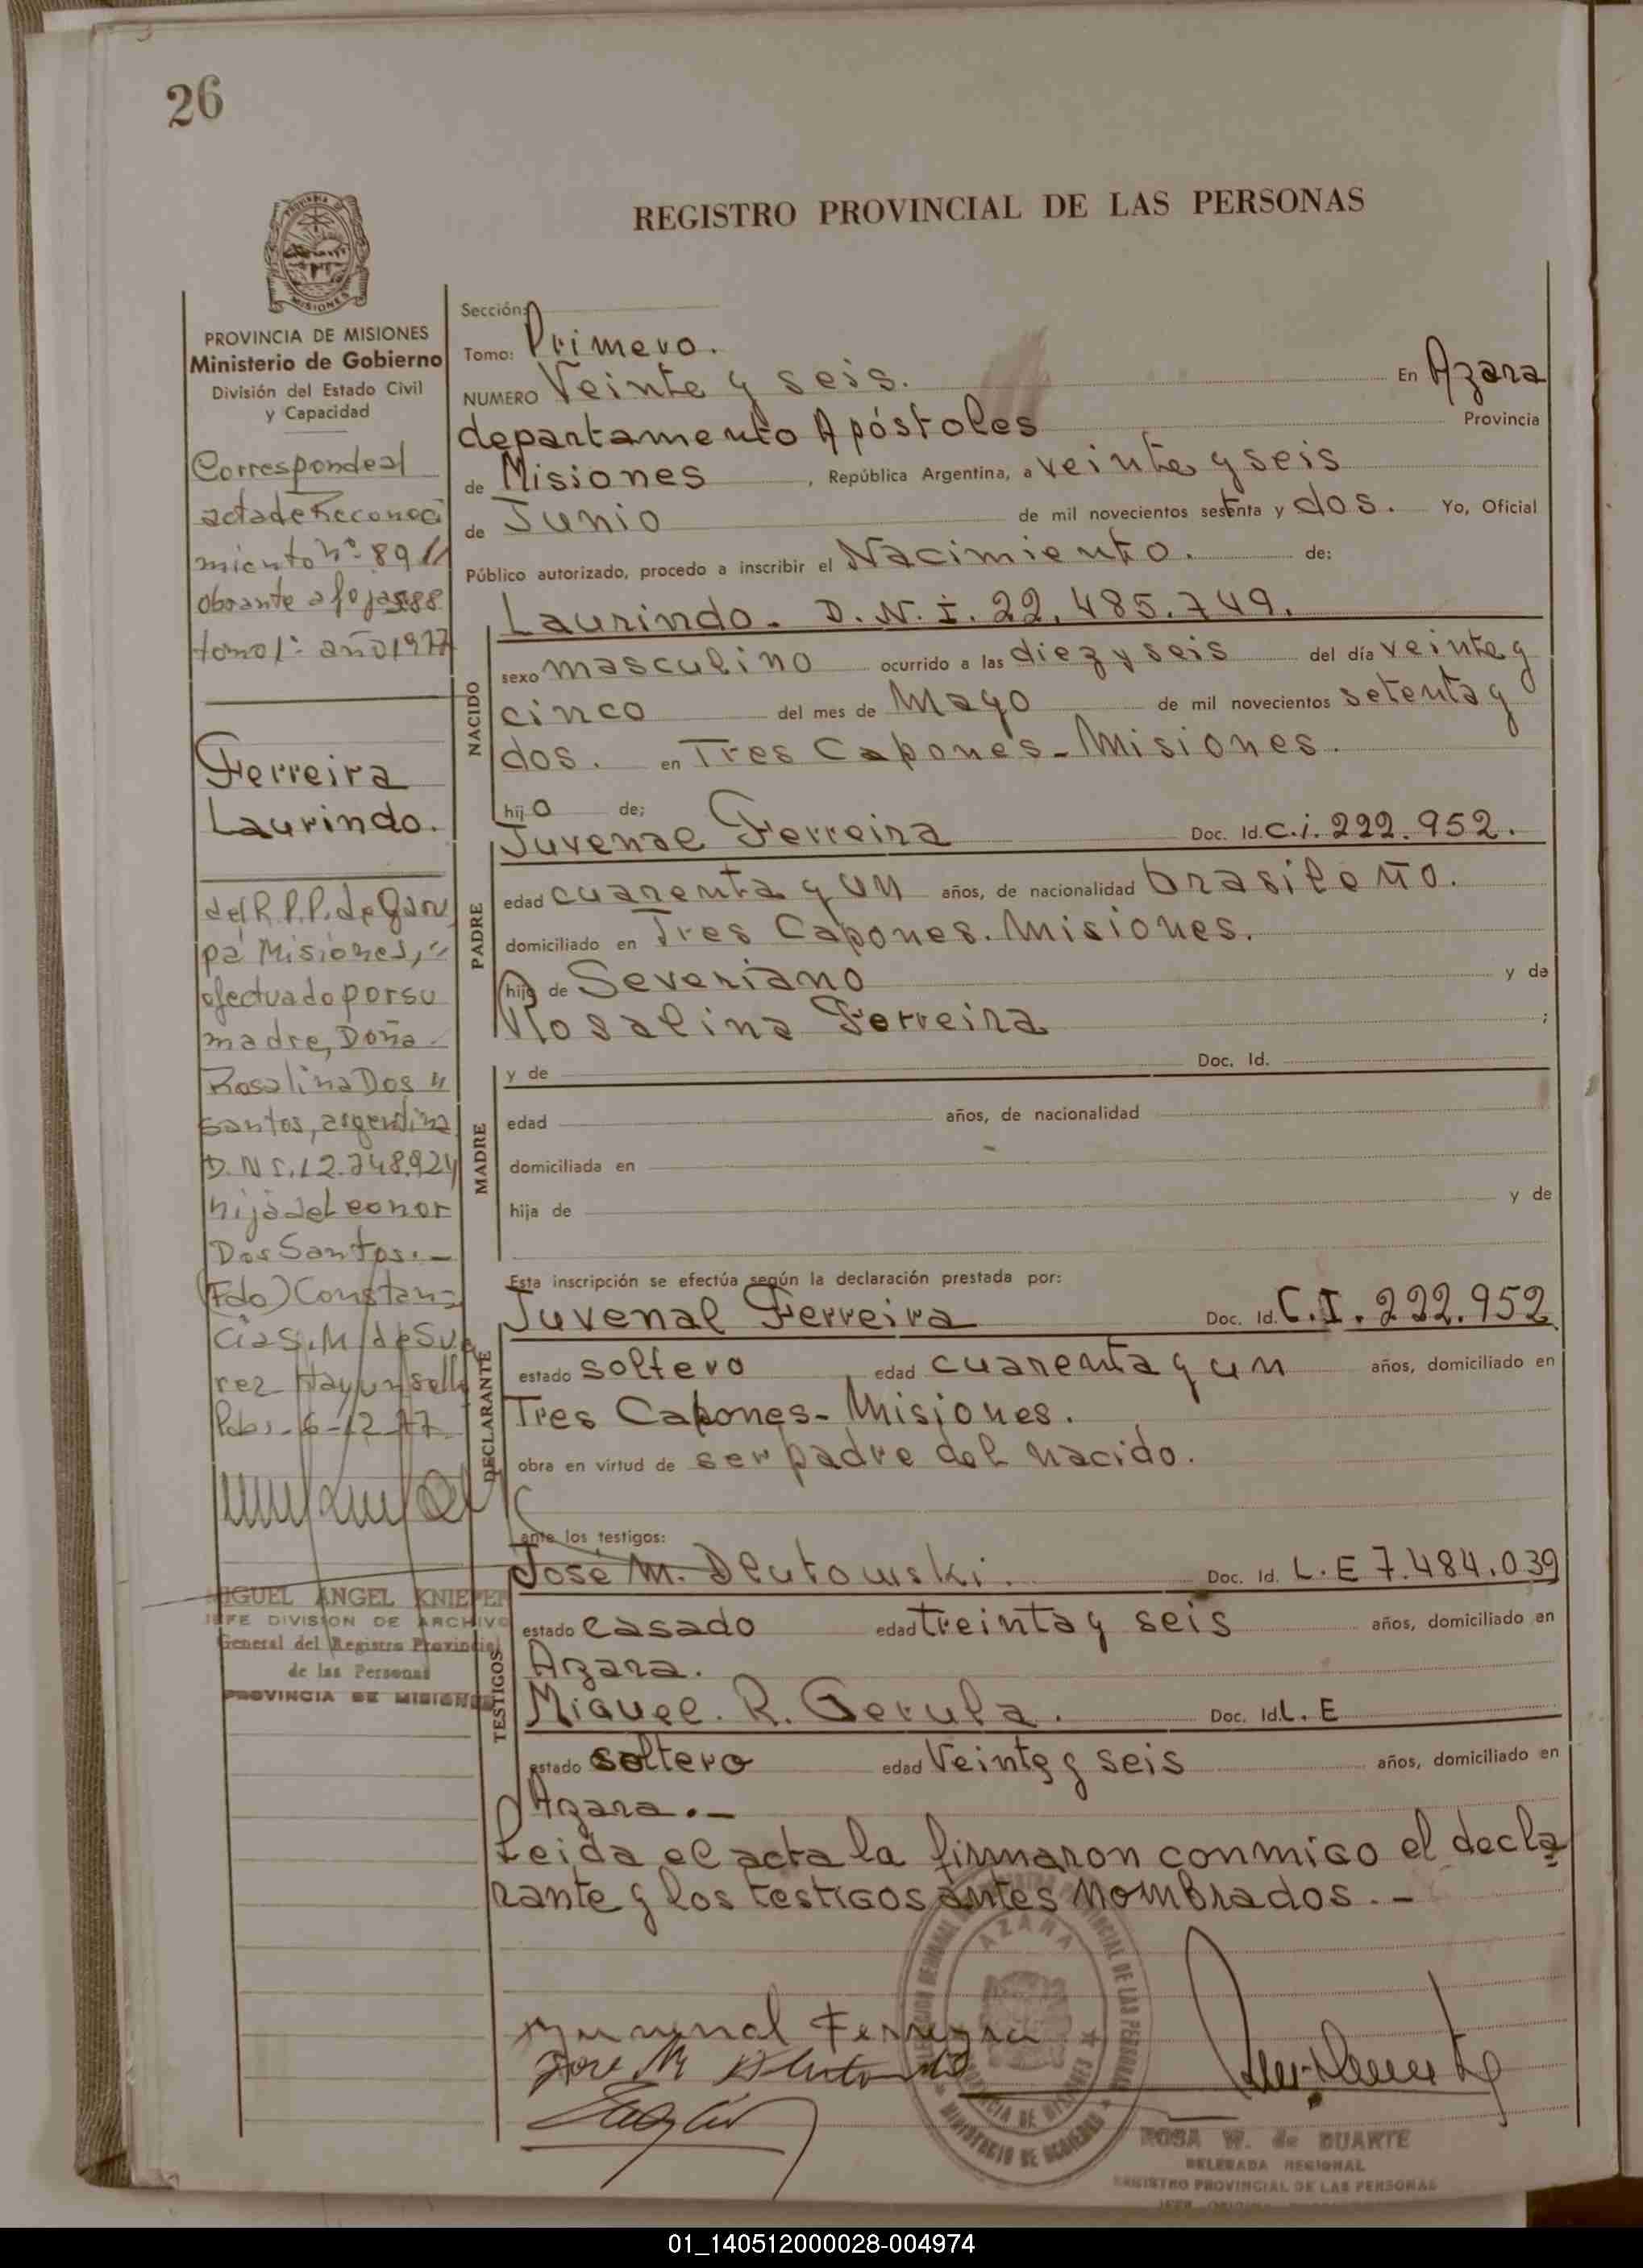 26
REGISTRO PROVINCIAL DE LAS PERSONAS
MISIONES
PROVINCIA DE MISIONES
Ministerio de Gobierno
División del Estado Civil
y Capacidad
Corresponde al
acta de Reconoci
miento nº 89 //
obrante a fojas 88
tomo 1º año 1977
Ferreira
Laurindo.
del R.P.P. de Garu
pá Misiones, "
efectuado por su
madre, Doña
Rosalina Dos "
Santos, argentina
D.N.I. 12.748.924
hija de Leonor
Dos Santos. —
(Fdo) Constan
cia S. M de Sua
rez Hay un sello
Pdas. 6-12-77
MIGUEL ANGEL KNIEPER
JEFE DIVISION DE ARCHIVO
General del Registro Provincial
de las Personas
PROVINCIA DE MISIONES
Sección:
Tomo: Primero.
NUMERO Veinte y seis. En Azara
departamento Apóstoles Provincia
de Misiones, República Argentina, a veinte y seis
de Junio de mil novecientos setenta y dos. Yo, Oficial
Público autorizado, procedo a inscribir el Nacimiento. de:
NACIDO
Laurindo. D.N.I. 22.485.749.
sexo masculino ocurrido a las diez y seis del día veinte y
cinco del mes de Mayo de mil novecientos setenta y
dos. en Tres Capones - Misiones.
hijo de;
PADRE
Juvenal Ferreira Doc. Id. C.i. 222.952.
edad cuarenta y un años, de nacionalidad brasileño.
domiciliado en Tres Capones. Misiones.
hijo de Severiano y de
Rosalina Ferreira ;
MADRE
y de Doc. Id.
edad años, de nacionalidad
domiciliada en
hija de y de
Esta inscripción se efectúa según la declaración prestada por:
DECLARANTE
Juvenal Ferreira Doc. Id. C.I. 222.952
estado soltero edad cuarenta y un años, domiciliado en
Tres Capones - Misiones.
obra en virtud de ser padre del nacido.
ante los testigos:
TESTIGOS
José M. Dlutowski. Doc. Id. L.E 7.484.039
estado casado edad treinta y seis años, domiciliado en
Azara.
Miguel. R. Gerula. Doc. Id. L.E
estado soltero edad Veinte y seis años, domiciliado en
Azara. —
Leida el acta la firmaron conmigo el decla
rante y los testigos antes nombrados. —
Juvenal Ferreyra
José M Dlutowski
AZARA
PROVINCIA DE MISIONES
MINISTERIO DE GOBIERNO
ROSA W. de DUARTE
DELEGADA REGIONAL
REGISTRO PROVINCIAL DE LAS PERSONAS
01_140512000028-004974